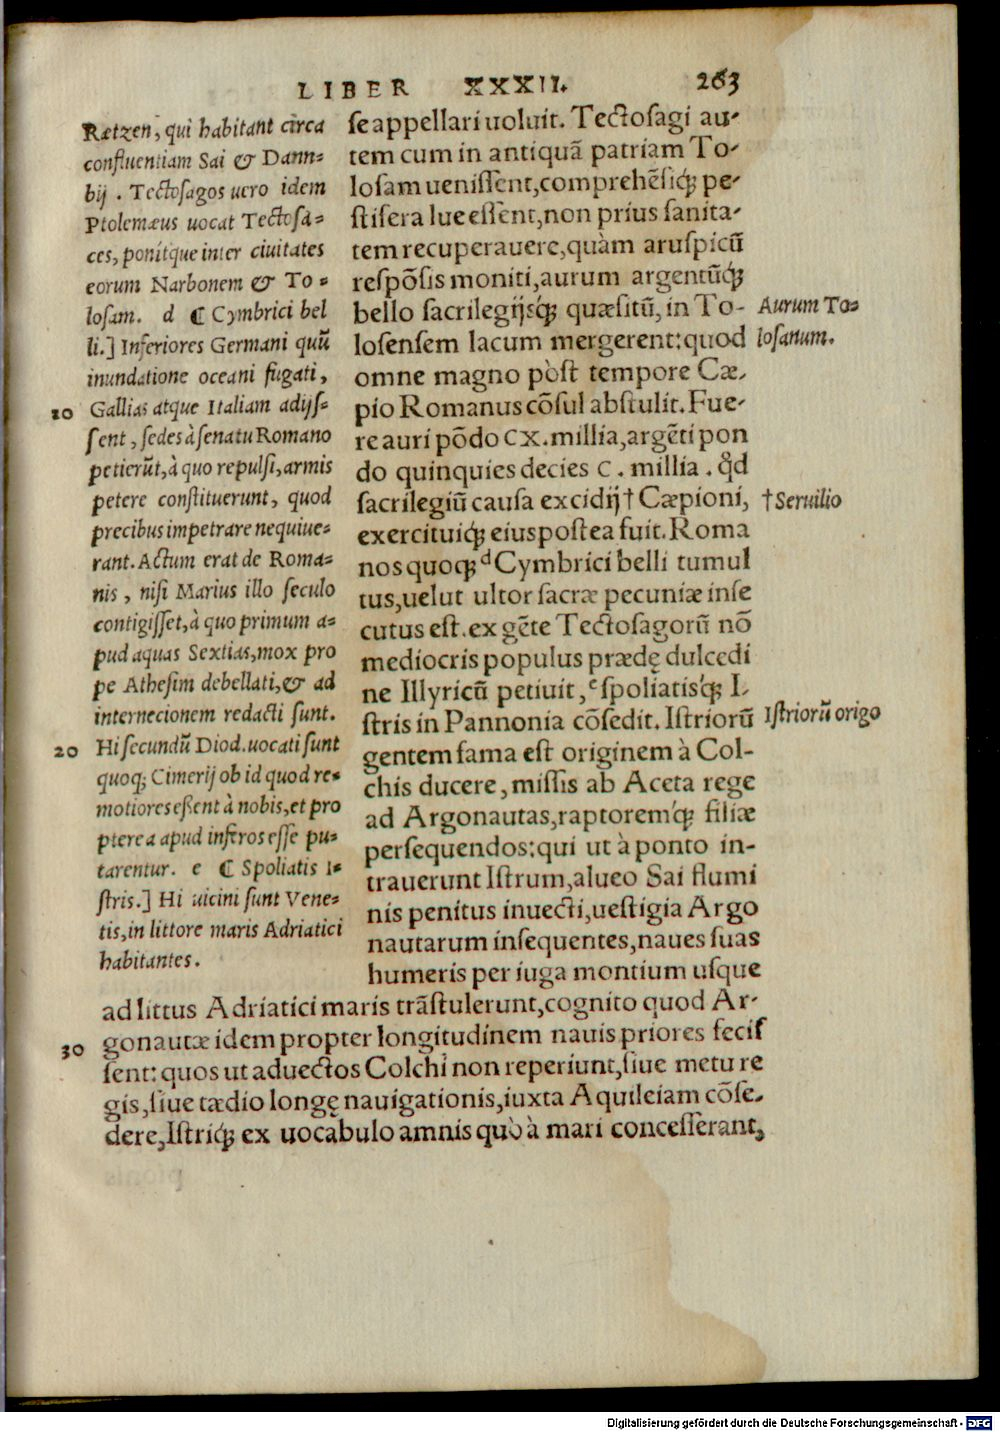 LIBER XXXII. 263
Rætzen, qui habitant circa
confluentiam Sai & Dann-
bij . Tectosagos uero idem
Ptolemæus uocat Tectosa-
ces, ponitque inter ciuitates
eorum Narbonem & To-
losam. d ⁋ Cymbrici bel
li.] Inferiores Germani quũ
inundatione oceani fugati,
10 Gallias atque Italiam adijs-
sent, sedes à senatu Romano
petierũt, à quo repulsi, armis
petere constituerunt, quod
precibus impetrare nequiue-
rant. Actum erat de Roma-
nis, nisi Marius illo seculo
contigisset, à quo primum a-
pud aquas Sextias, mox pro
pe Athesim debellati, & ad
internecionem redacti sunt.
20 Hi secundũ Diod. uocati sunt
quoq; Cimerij ob id quod re-
motiores eßent à nobis, et pro
pterea apud inferos esse pu-
tarentur. e ⁋ Spoliatis I-
stris.] Hi uicini sunt Vene-
tis, in littore maris Adriatici
habitantes.
se appellari uoluit. Tectosagi au-
tem cum in antiquã patriam To-
losam uenissent, comprehẽsiq́; pe-
stifera lue essent, non prius sanita-
tem recuperauere, quàm aruspicũ
respõsis moniti, aurum argentũq́;
bello sacrilegijsq́; quæsitũ, in To-
losensem lacum mergerent: quod
omne magno pòst tempore Cæ-
pio Romanus cõsul abstulit. Fue-
re auri põdo CX. millia, argẽti pon
do quinquies decies C. millia. qd̃
sacrilegiũ causa excidij † Cæpioni,
exercituiq́; eius postea fuit. Roma
nos quoq; ᵈ Cymbrici belli tumul
tus, uelut ultor sacræ pecuniæ inse
cutus est. ex gẽte Tectosagorũ nõ
mediocris populus prædę dulcedi
ne Illyricũ petiuit, ᵉ spoliatisq́; I-
stris in Pannonia cõsedit. Istriorũ
gentem fama est originem à Col-
chis ducere, missis ab Aceta rege
ad Argonautas, raptoremq́; filiæ
persequendos: qui ut à ponto in-
trauerunt Istrum, alueo Sai flumi
nis penitus inuecti, uestigia Argo
nautarum insequentes, naues suas
humeris per iuga montium usque
ad littus Adriatici maris trãstulerunt, cognito quod Ar-
30 gonautæ idem propter longitudinem nauis priores fecis
sent: quos ut aduectos Colchi non reperiunt, siue metu re
gis, siue tædio longę nauigationis, iuxta Aquileiam cõse-
dere, Istriq́; ex uocabulo amnis quò à mari concesserant,
Aurum To-
losanum.
† Seruilio
Istriorũ origo
Digitalisierung gefördert durch die Deutsche Forschungsgemeinschaft - DFG